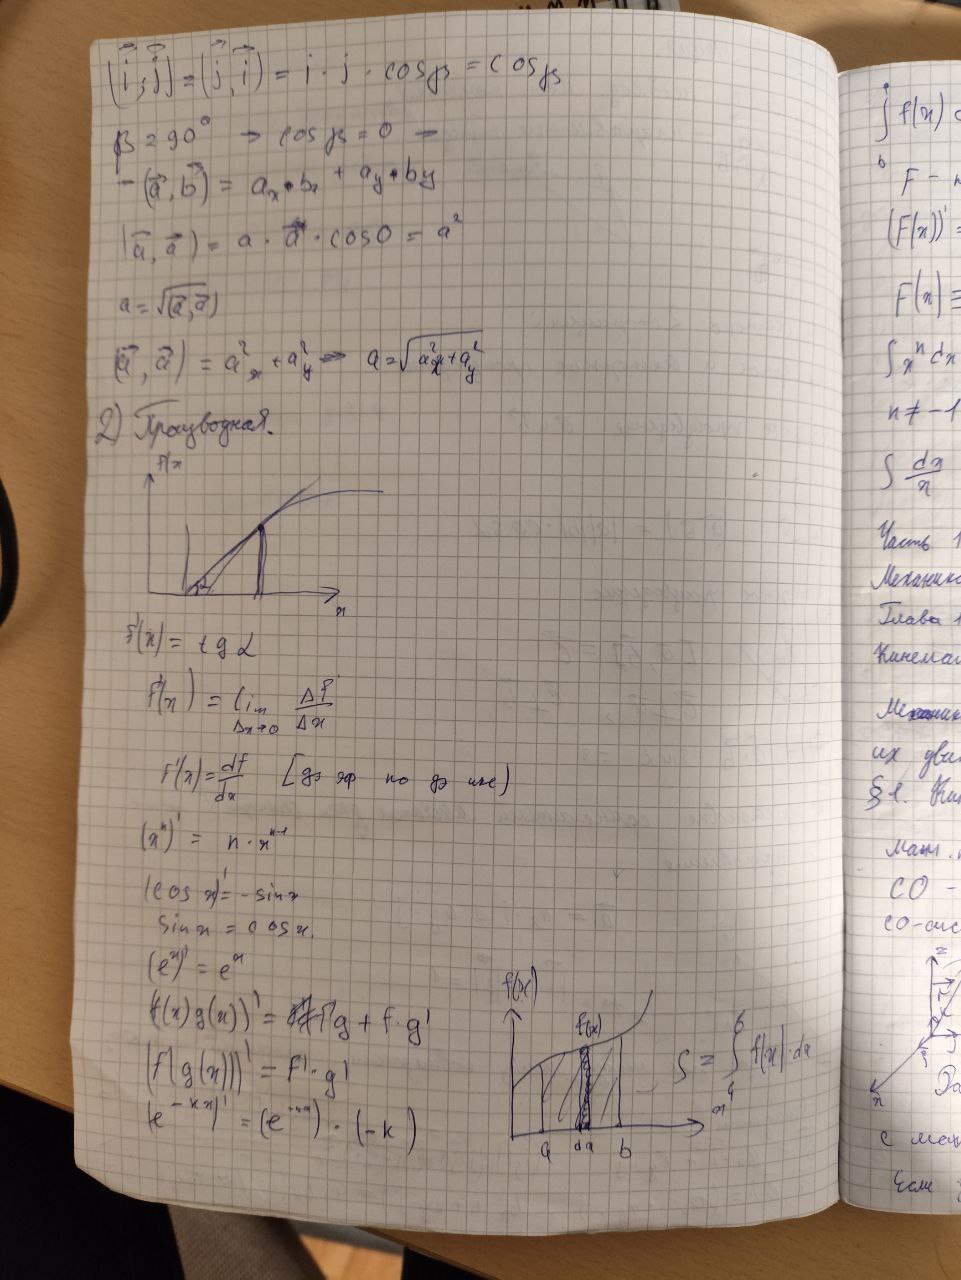 (i⃗, j⃗) = (j⃗, i⃗) = i · j · cosβ = cosβ
β = 90° → cosβ = 0 →
- (a⃗, b⃗) = aₓ·bₓ + a_y·b_y
(a⃗, a⃗) = a · a · cos0 = a²
a = √(a⃗, a⃗)
(a⃗, a⃗) = a²ₓ + a²_y → a = √a²ₓ + a²_y
2) Празводная.
f(x
x
f'(x) = tg α
f'(x) = lim Δf/Δx
Δx→0
f'(x) = df/dx [дэ эф по дэ икс)
(xⁿ)' = n · xⁿ⁻¹
(cos x)' = -sinx
sinx = cosx.
(eˣ)' = eˣ
(f(x)g(x))' = f'g + f·g'
(f(g(x)))' = f'·g'
(e^-kx)' = (e^-kx) · (-k)
f(x)
f(x)
a dx b
x
S = ∫ f(x)·dx
∫ f(x)
b
F -
(F(x))' =
F(x) =
∫ xⁿ dx
n ≠ -1
∫ dx/x
Часть 1
Механика
Глава 1
Кинема
их дви
§1. Ки
Мат.
СО -
СО-сис
z
x
с
Если